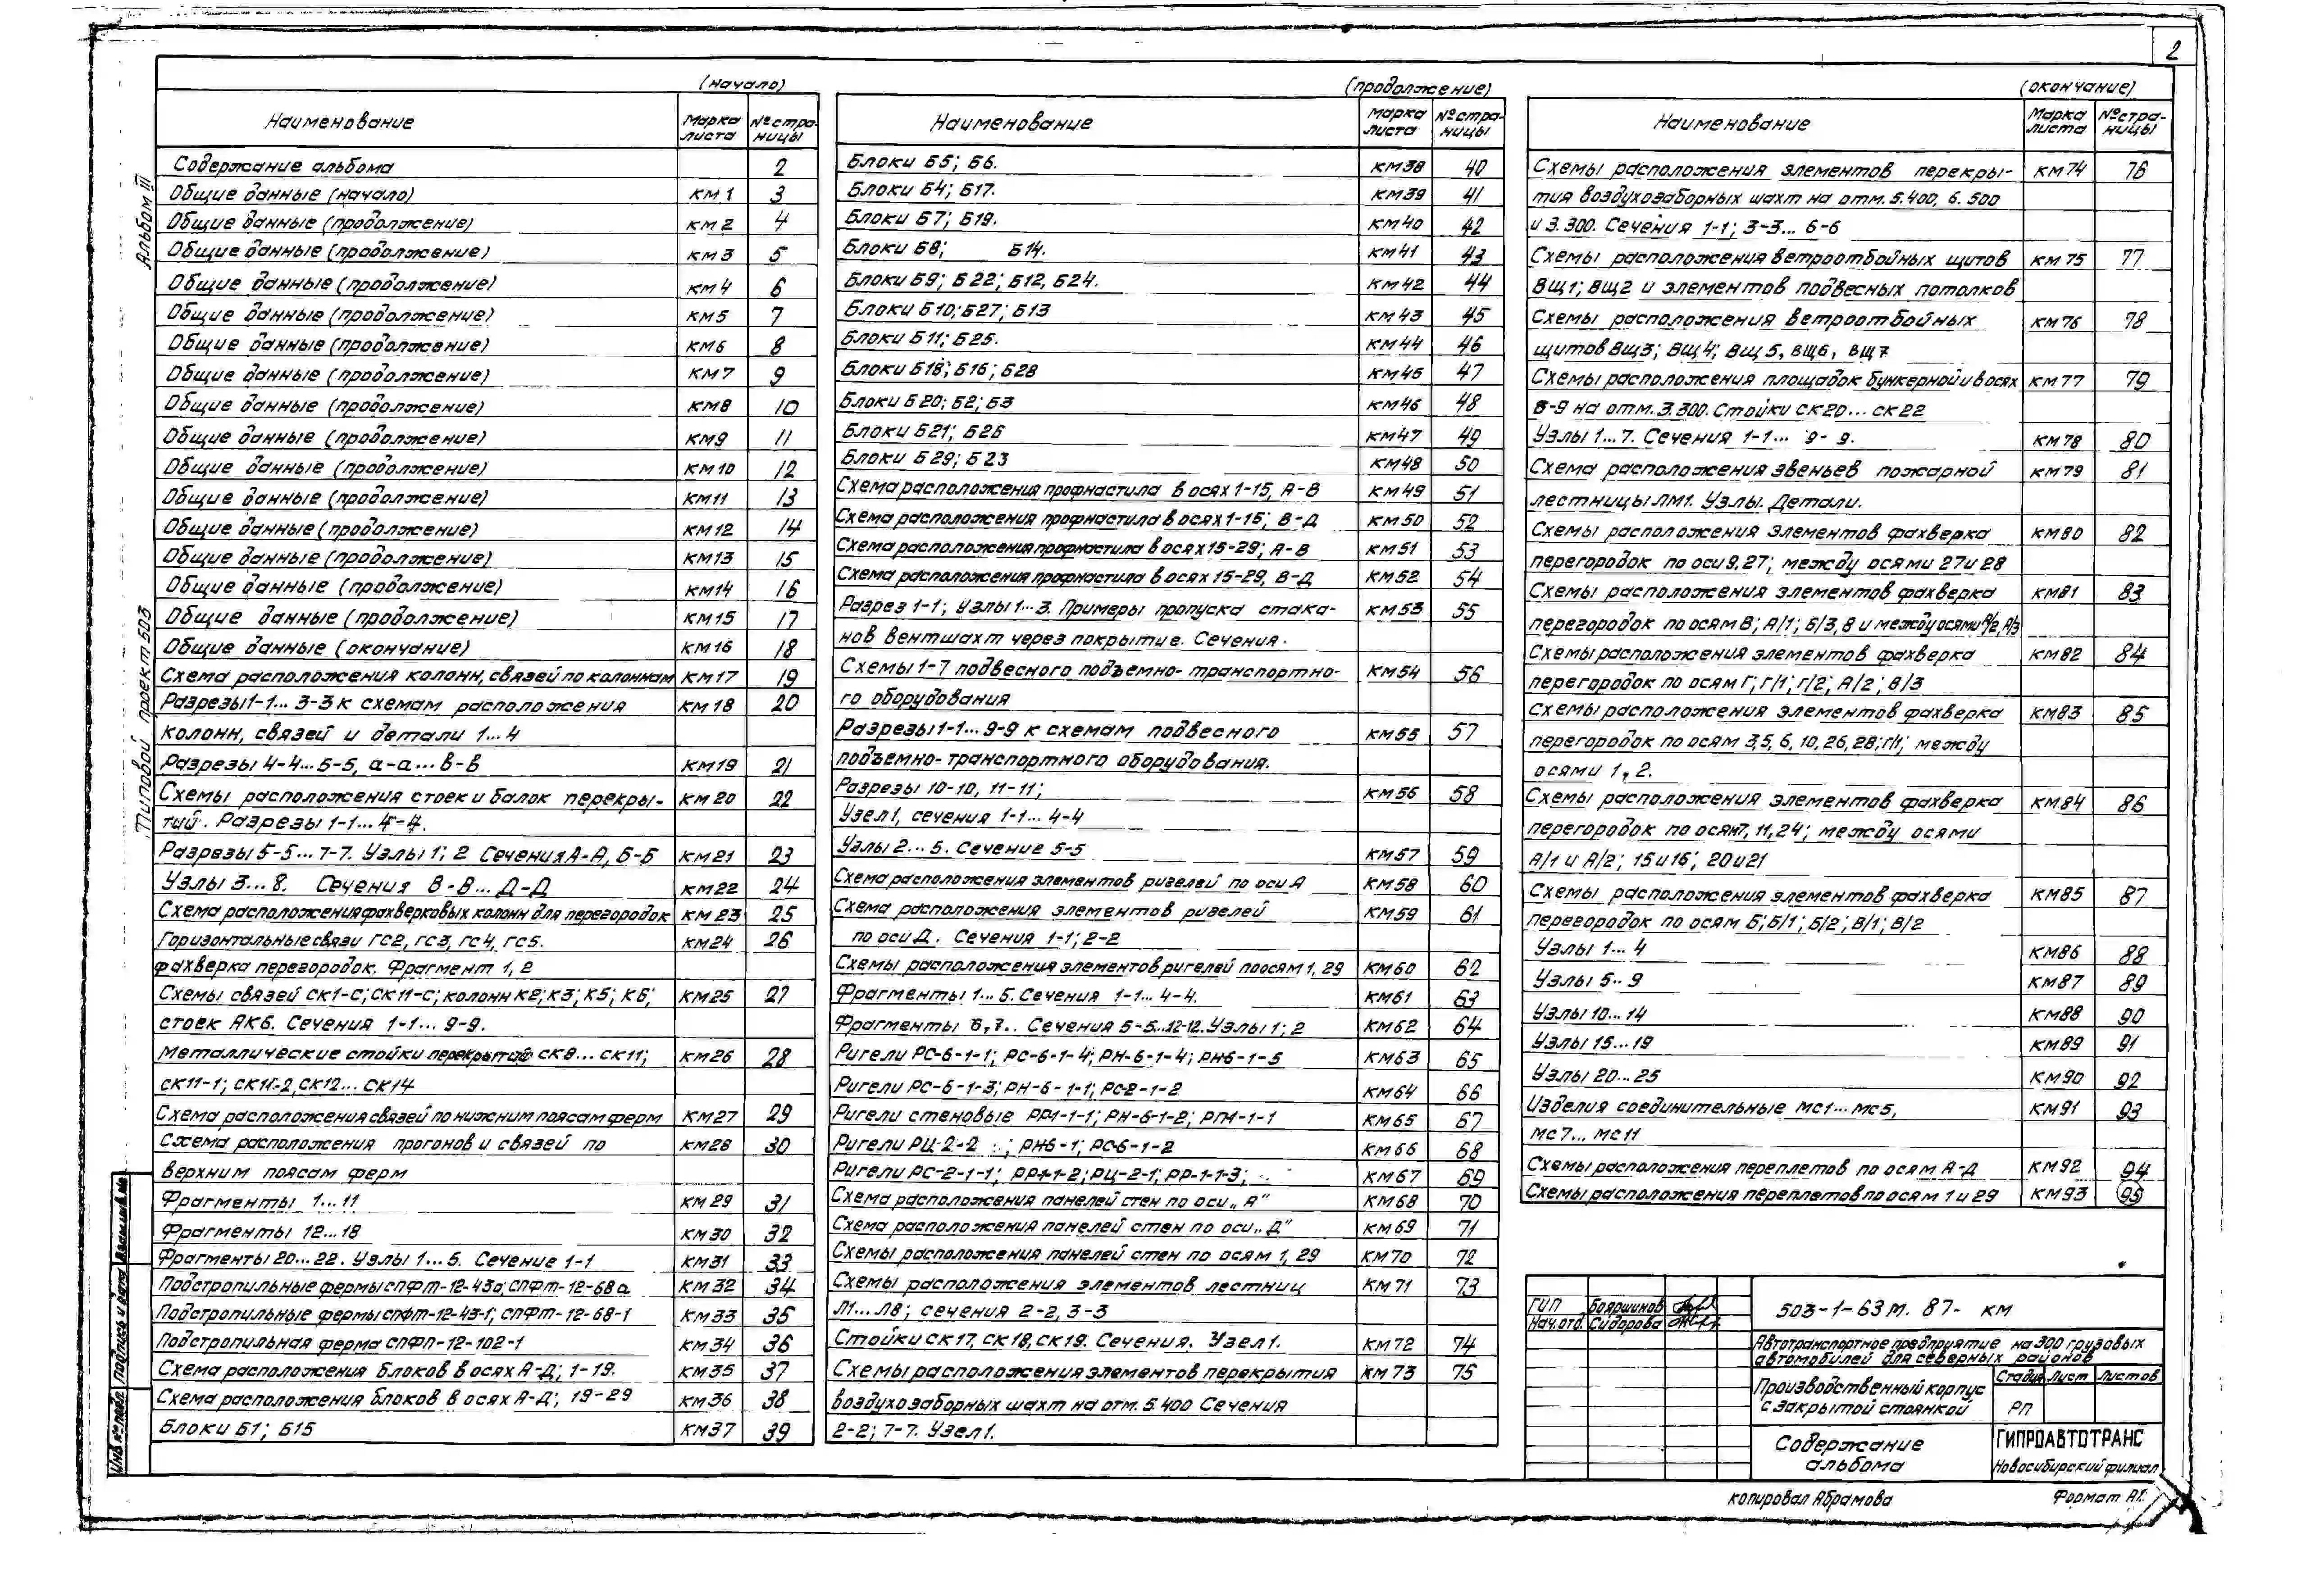 2
Альбом III
Типовой проект 503
(начало)
Наименование Марка листа № страницы
Содержание альбома 2
Общие данные (начало) КМ 1 3
Общие данные (продолжение) КМ 2 4
Общие данные (продолжение) КМ 3 5
Общие данные (продолжение) КМ 4 6
Общие данные (продолжение) КМ5 7
Общие данные (продолжение) КМ6 8
Общие данные (продолжение) КМ 7 9
Общие данные (продолжение) КМ8 10
Общие данные (продолжение) КМ9 11
Общие данные (продолжение) КМ10 12
Общие данные (продолжение) КМ11 13
Общие данные (продолжение) КМ12 14
Общие данные (продолжение) КМ13 15
Общие данные (продолжение) КМ14 16
Общие данные (продолжение) КМ15 17
Общие данные (окончание) КМ16 18
Схема расположения колонн, связей по колоннам КМ17 19
Разрезы 1-1... 3-3 к схемам расположения КМ18 20
колонн, связей и детали 1...4
Разрезы 4-4...5-5, а-а...в-в КМ19 21
Схемы расположения стоек и балок перекры- КМ20 22
тий. Разрезы 1-1...4-4.
Разрезы 5-5...7-7. Узлы 1; 2 Сечения А-А, Б-Б КМ21 23
Узлы 3...8. Сечения В-В...Д-Д КМ22 24
Схема расположения фахверковых колонн для перегородок КМ 23 25
Горизонтальные связи ГС2, ГС3, ГС4, ГС5. КМ24 26
фахверка перегородок. Фрагмент 1, 2
Схемы связей СК1-С; СК11-С; колонн К2; К3; К5; К6; КМ25 27
стоек АК6. Сечения 1-1...9-9.
Металлические стойки перекрытий СК8...СК11; КМ26 28
СК11-1; СК11-2, СК12...СК14
Схема расположения связей по нижним поясам ферм КМ27 29
Схема расположения прогонов и связей по КМ28 30
верхним поясам ферм
Фрагменты 1...11 КМ 29 31
Фрагменты 12...18 КМ30 32
Фрагменты 20...22. Узлы 1...5. Сечение 1-1 КМ31 33
Подстропильные фермы СПФТ-12-43а; СПФТ-12-68а КМ 32 34
Подстропильные фермы СПФТ-12-43-1; СПФТ-12-68-1 КМ33 35
Подстропильная ферма СПФП-12-102-1 КМ34 36
Схема расположения блоков в осях А-Д; 1-19. КМ35 37
Схема расположения блоков в осях А-Д; 19-29 КМ36 38
Блоки Б1; Б15 КМ37 39
(продолжение)
Наименование Марка листа № страницы
Блоки Б5; Б6. КМ38 40
Блоки Б4; Б17. КМ39 41
Блоки Б7; Б19. КМ40 42
Блоки Б8; Б14. КМ41 43
Блоки Б9; Б22; Б12, Б24. КМ42 44
Блоки Б10; Б27; Б13 КМ43 45
Блоки Б11; Б25. КМ44 46
Блоки Б18; Б16; Б28 КМ45 47
Блоки Б20; Б2; Б3 КМ46 48
Блоки Б21; Б26 КМ47 49
Блоки Б29; Б23 КМ48 50
Схема расположения профнастила в осях 1-15, А-В КМ49 51
Схема расположения профнастила в осях 1-15; В-Д КМ50 52
Схема расположения профнастила в осях 15-29; А-В КМ51 53
Схема расположения профнастила в осях 15-29, В-Д КМ52 54
Разрез 1-1; Узлы 1...3. Примеры пропуска стака- КМ53 55
нов вентшахт через покрытие. Сечения.
Схемы 1-7 подвесного подъемно-транспортно- КМ54 56
го оборудования
Разрезы 1-1...9-9 к схемам подвесного КМ55 57
подъемно-транспортного оборудования.
Разрезы 10-10, 11-11; КМ56 58
Узел 1, сечения 1-1...4-4
Узлы 2...5. Сечение 5-5 КМ57 59
Схема расположения элементов ригелей по оси А КМ58 60
Схема расположения элементов ригелей КМ59 61
по оси Д. Сечения 1-1; 2-2
Схемы расположения элементов ригелей по осям 1, 29 КМ60 62
Фрагменты 1...5. Сечения 1-1...4-4. КМ61 63
Фрагменты 6,7.. Сечения 5-5...12-12. Узлы 1; 2 КМ62 64
Ригели РС-6-1-1; РС-6-1-4; РН-6-1-4; РН6-1-5 КМ63 65
Ригели РС-6-1-3; РН-6-1-1; РС-2-1-2 КМ64 66
Ригели стеновые РР1-1-1; РН-6-1-2; РП1-1-1 КМ65 67
Ригели РЦ-2-2 ; РН6-1; РС-6-1-2 КМ66 68
Ригели РС-2-1-1; РР1-1-2; РЦ-2-1; РР-1-1-3; КМ67 69
Схема расположения панелей стен по оси „А" КМ68 70
Схема расположения панелей стен по оси „Д" КМ69 71
Схемы расположения панелей стен по осям 1, 29 КМ70 72
Схемы расположения элементов лестниц КМ71 73
Л1...Л8; сечения 2-2, 3-3
Стойки СК17, СК18, СК19. Сечения. Узел 1. КМ72 74
Схемы расположения элементов перекрытия КМ 73 75
воздухозаборных шахт на отм. 5.400 Сечения
2-2; 7-7. Узел 1.
(окончание)
Наименование Марка листа № страницы
Схемы расположения элементов перекры- КМ74 76
тия воздухозаборных шахт на отм. 5.400, 6.500
и 3.300. Сечения 1-1; 3-3...6-6
Схемы расположения ветроотбойных щитов КМ 75 77
ВЩ1; ВЩ2 и элементов подвесных потолков
Схемы расположения ветроотбойных КМ76 78
щитов ВЩ3; ВЩ4; ВЩ5, ВЩ6, ВЩ7
Схемы расположения площадок бункерной и в осях КМ77 79
8-9 на отм. 3.300. Стойки СК20...СК22
Узлы 1...7. Сечения 1-1... 9-9. КМ78 80
Схема расположения звеньев пожарной КМ79 81
лестницы ЛМ1. Узлы. Детали.
Схемы расположения элементов фахверка КМ80 82
перегородок по оси 9,27; между осями 27 и 28
Схемы расположения элементов фахверка КМ81 83
перегородок по осям В; А/1; Б/3, 8 и между осями А/2, А/3
Схемы расположения элементов фахверка КМ82 84
перегородок по осям Г; Г/1; Г/2; А/2; В/3
Схемы расположения элементов фахверка КМ83 85
перегородок по осям 3,5, 6, 10, 26, 28; Г/1; между
осями 1, 2.
Схемы расположения элементов фахверка КМ84 86
перегородок по осям 7, 11, 24; между осями
А/1 и А/2; 15 и 16; 20 и 21
Схемы расположения элементов фахверка КМ85 87
перегородок по осям Б; Б/1; Б/2; В/1; В/2
Узлы 1...4 КМ86 88
Узлы 5..9 КМ87 89
Узлы 10...14 КМ88 90
Узлы 15...19 КМ89 91
Узлы 20...25 КМ90 92
Изделия соединительные МС1...МС5, КМ91 93
МС7...МС11
Схемы расположения переплетов по осям А-Д КМ92 94
Схемы расположения переплетов по осям 1 и 29 КМ93 95
ГИП Бояршинов
Нач.отд. Сидорова
503-1-63м. 87- КМ
Автотранспортное предприятие на 300 грузовых
автомобилей для северных районов
Производственный корпус
с закрытой стоянкой
Стадия Лист Листов
РП
Содержание
альбома
ГИПРОАВТОТРАНС
Новосибирский филиал
Инв № подл. Подпись и дата Взам.инв.№
копировал Абрамова
Формат А2